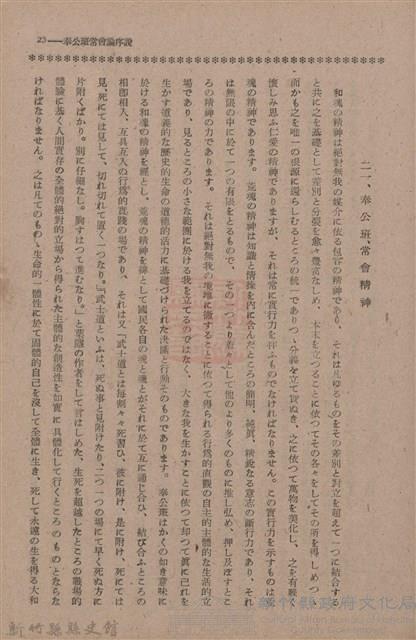 23——奉公班常會論序說
二一、奉公班、常會精神
和魂の精神は絕對無我の媒介に依る包容の精神であり、それは凡ゆるものをその差別と對立を超えて一つに結合する
と共に之を基礎として差別と分裂を愈々豐富なしめ、本末を立つることに依つてその各々をしてその所を得しめつゝ
而かも之を唯一の根源に還らしむるところの統一でありつゝ分義を立て貫ぬき、之に依つて萬物を美化し、之を有難く
懷しみ思ふ仁愛の精神でありますが、それは常に實行力を伴ふものでなければなりません。この實行力を示すものは荒
魂の精神であります。荒魂の精神は知識と情操を內に含んだところの簡明、純眞、精銳なる意志の斷行力であり、それ
は無限の中に於て一つの有限をとるもので、その一つより着々として他のより多くのものに推し弘め、押し及ぼすとこ
ろの精神の力であります。それは絕對無我の境地に徹することに依つて得られる行爲的直觀の自主的主體的な生活的立
場であり、見るところの小さな範圍に於ける我を立てるのではなく、大きな我を生かすことに依つて却つて眞に己れを
生かす道義的な歷史的生命の道德的活力に基礎づけられた決議と行動そのものであります。奉公班はかくの如き意味に
於ける和魂の精神を經とし、荒魂の精神を緯として國民各自の魂と魂とがそれに於て互に通じ合ひ、結び合ふところの
相卽相入、互具互入の行爲的實踐の場であり、それは又「武士道とは每刻々々死習ひ、彼に附け、是に附け、死にては
見、死にては見して、切れ切れて置く一つなり。」「武士道といふは、死ぬ事と見附けたり、二つ一つの場にて早く死ぬ方に
片附くばかり。別に仔細なし。胸すわつて進むなり。」と葉隱の作者をして言はしめた、生死を超越したところの職場的
體驗に基く人間實存の全體的絕對的立場から得られた主體的な創造性を如實に具體化して行くところのものとならな
ければなりません。之は凡てのもの、生命的一體性に於て個體的自己を沒して全體に生き、死して永遠の生を得る大和
新竹縣縣史館
新竹縣政府文化局